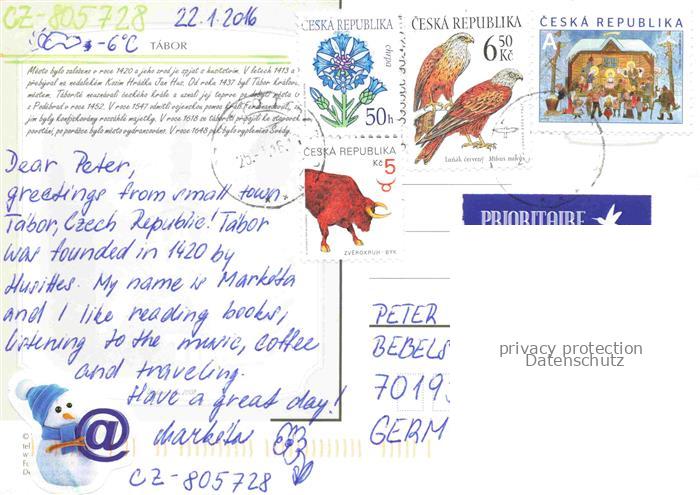 CZ-805728 22.1.2016
-6°C TÁBOR
Město bylo založeno v roce 1420 a jeho zrod je spjat s husitstvím. V letech 1413 a
přebýval na nedalekém Kozím Hrádku Jan Hus. Od roku 1437 byl Tábor králov
městem. Táborité neuznávali českého krále a uznali jej teprve
z Poděbrad v roce 1452. V roce 1547 odmítl vojenskou pomoc králi Ferdinandovi
jím byly konfiskovány rozsáhlé majetky. V roce 1618 se táborští připojili ke stavovsk
povstání, po porážce bylo město vydrancováno. V roce 1648 pak bylo vypleněno Švédy.
Dear Peter,
greetings from small town
Tábor, Czech Republic! Tábor
was founded in 1420 by
Husites. My name is Markéta
and I like reading books,
listening to the music, coffee
and traveling.
Have a great day!
Markéta
CZ-805728
@
ČESKÁ REPUBLIKA
chrpa
50 h
ČESKÁ REPUBLIKA
6 50
Kč
Luňák červený Milvus milvus
ČESKÁ REPUBLIKA
A
ČESKÁ REPUBLIKA
Kč 5
ZVĚROKRUH - BÝK
PRIORITAIRE
PETER
BEBELS
7019
GERM
privacy protection
Datenschutz